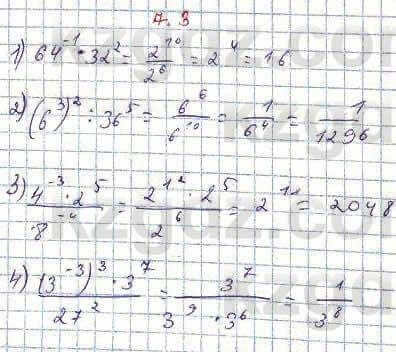 7.3
1) 64⁻¹ · 32² = 2¹⁰/2⁶ = 2⁴ = 16
2) (6³)² : 36⁵ = 6⁶/6¹⁰ = 1/6⁴ = 1/1296
3) 4⁻³ · 2⁵/8⁻⁴ = 2¹² · 2⁵/2⁶ = 2¹¹ = 2048
4) (3⁻³)³ · 3⁷/27² = 3⁷/3⁹ · 3⁶ = 1/3⁸